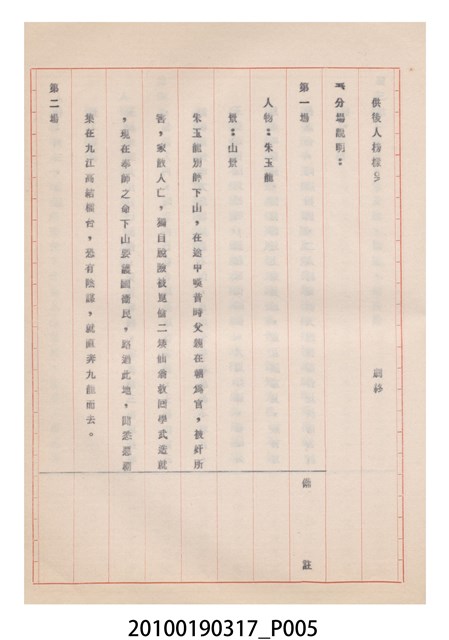 供後人楷模。 劇終
六分場說明：
第一場 備註
人物：朱玉龍
景：山景
朱玉龍別師下山，在途中嘆昔時父親在朝爲官，被奸所
害，家散人亡，獨自脫險被崑崙二塔仙翁救回學武造就
，現在奉師之命下山要護國衞民，路過此地，聞悉惡霸
集在九江高結擂台，恐有陰謀，就直奔九江而去。
第二場
20100190317_P005